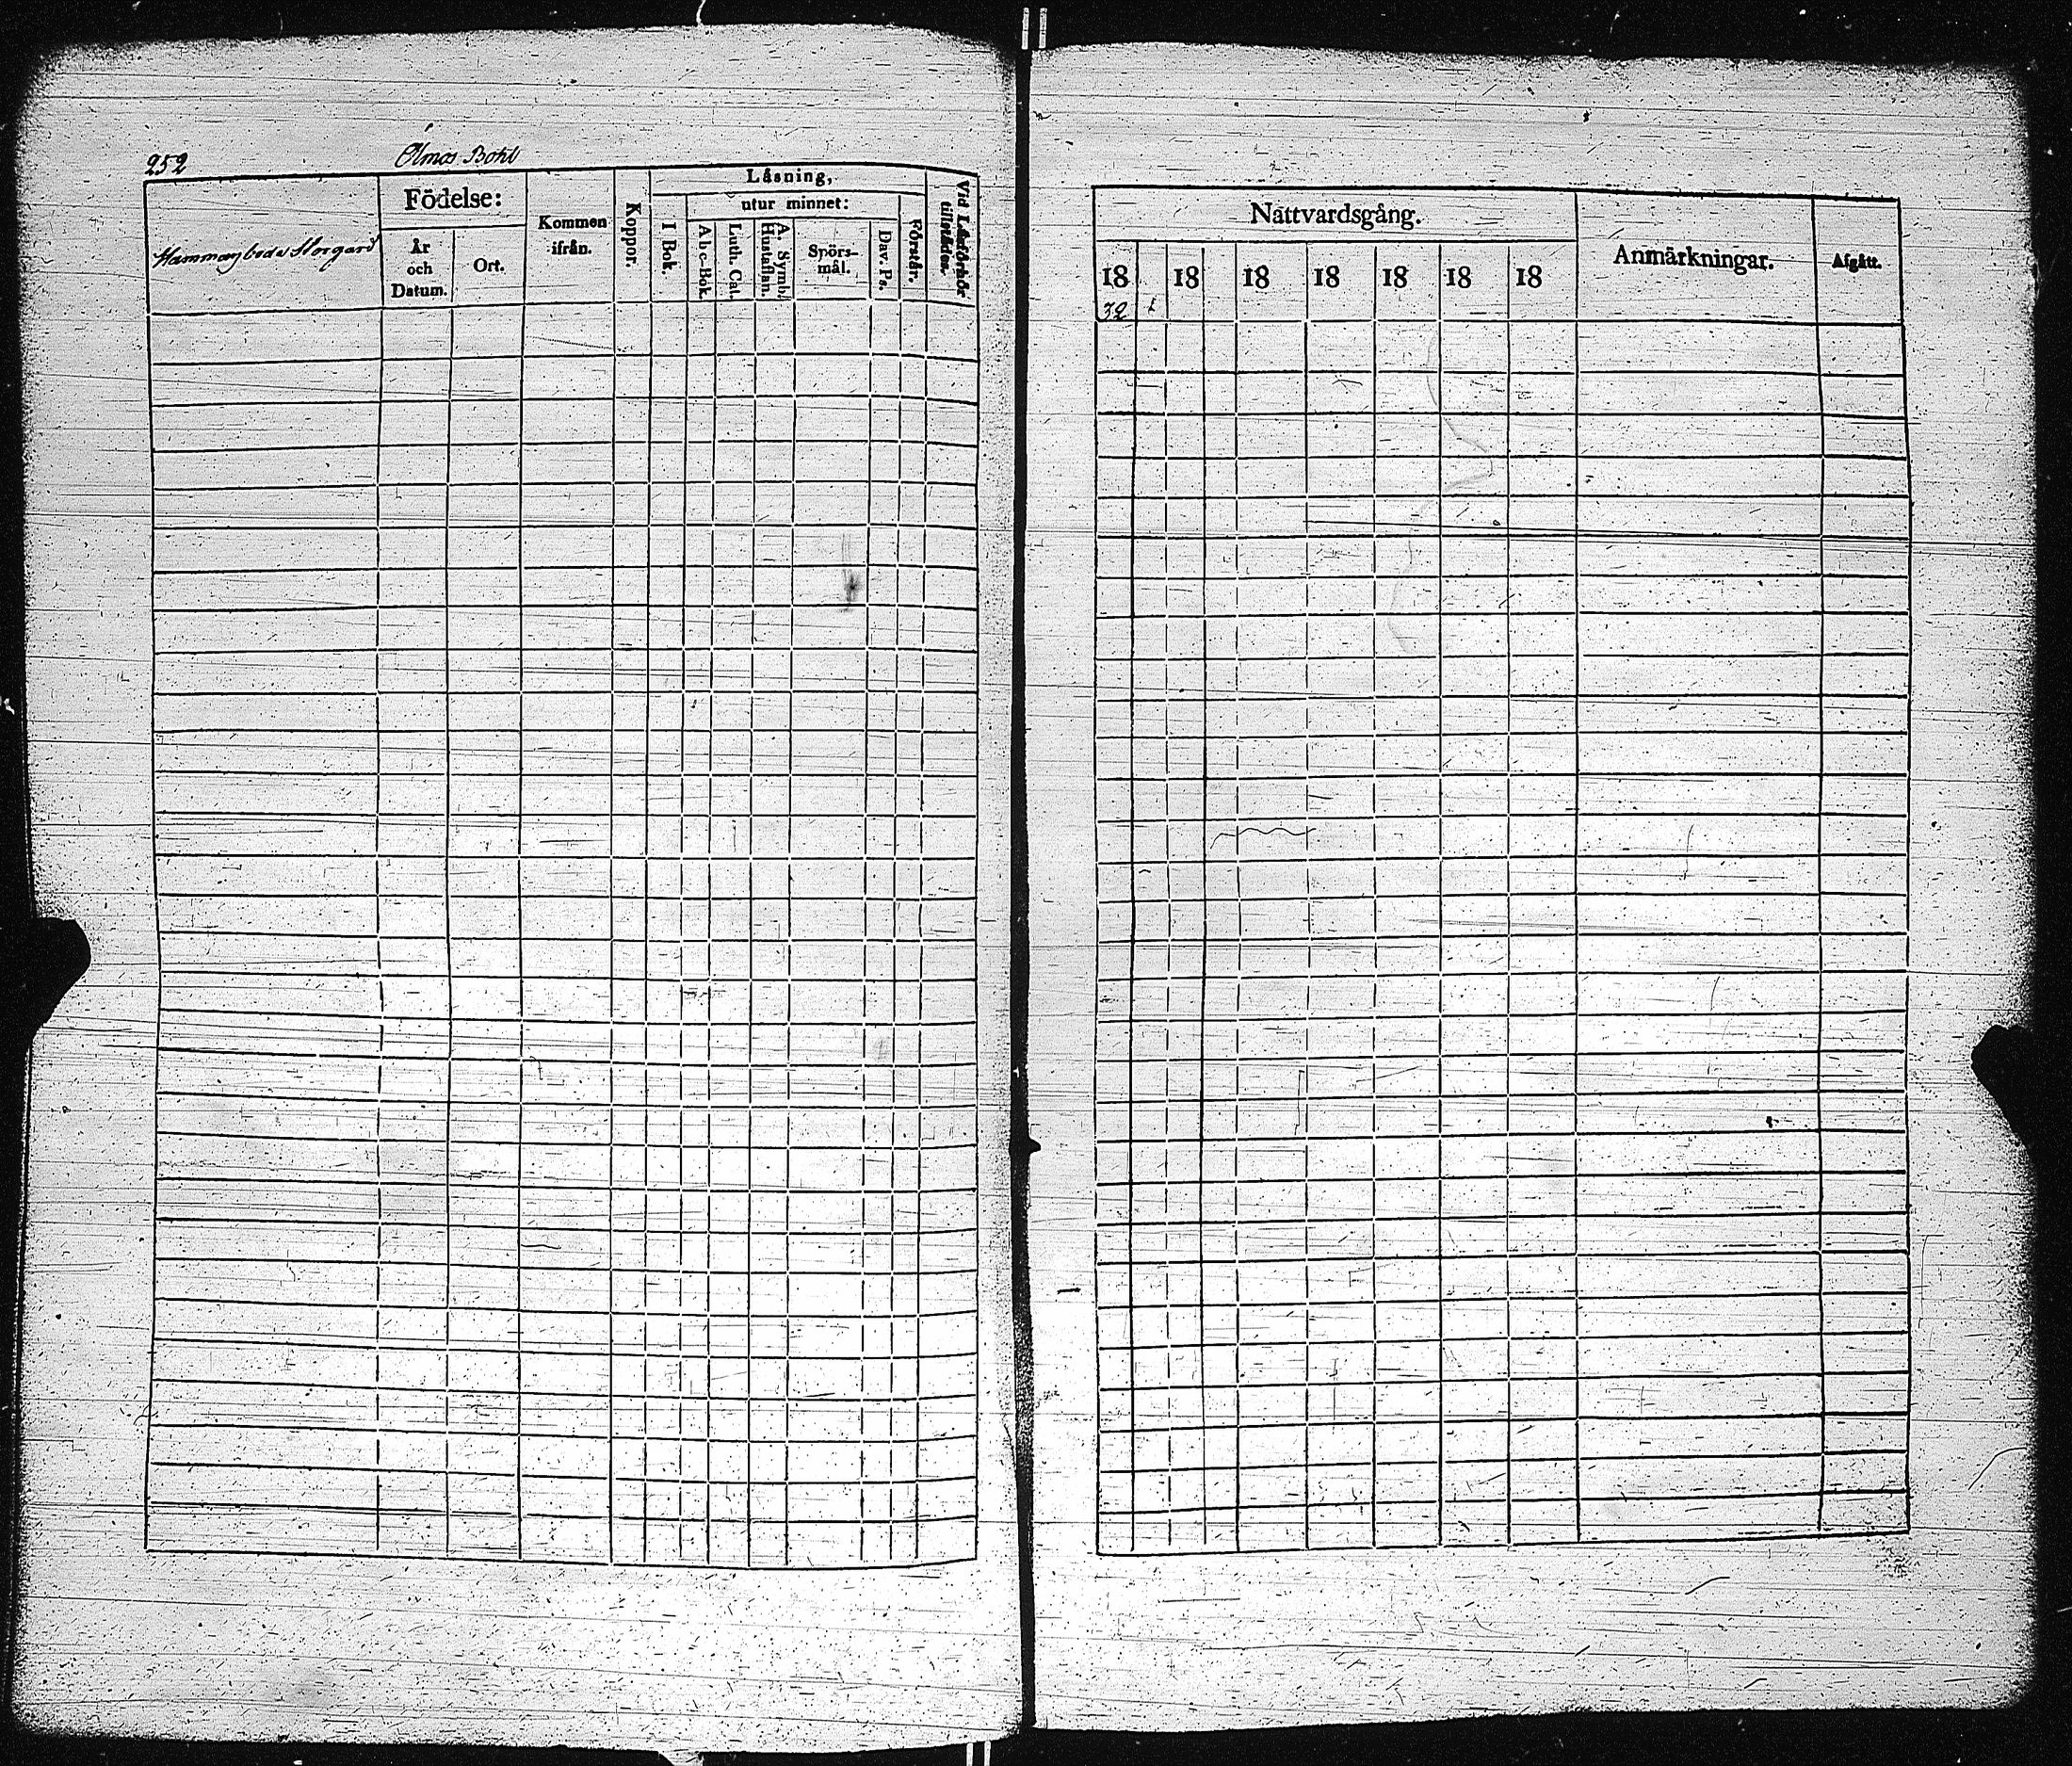 252 Ölmos Bohl
Hammarboda Storgård
Födelse:
År och Datum.
Ort.
Kommen ifrån.
Koppor.
Läsning,
I Bok.
utur minnet:
A b c-Bok.
Luth. Cat.
A. Symb. Hustaflan.
Spörs-mål.
Dav. Ps.
Förstår.
Vid Läsförhör tillstädes.
Nattvardsgång.
18 18 18 18 18 18 18
32
Anmärkningar.
Afgått.